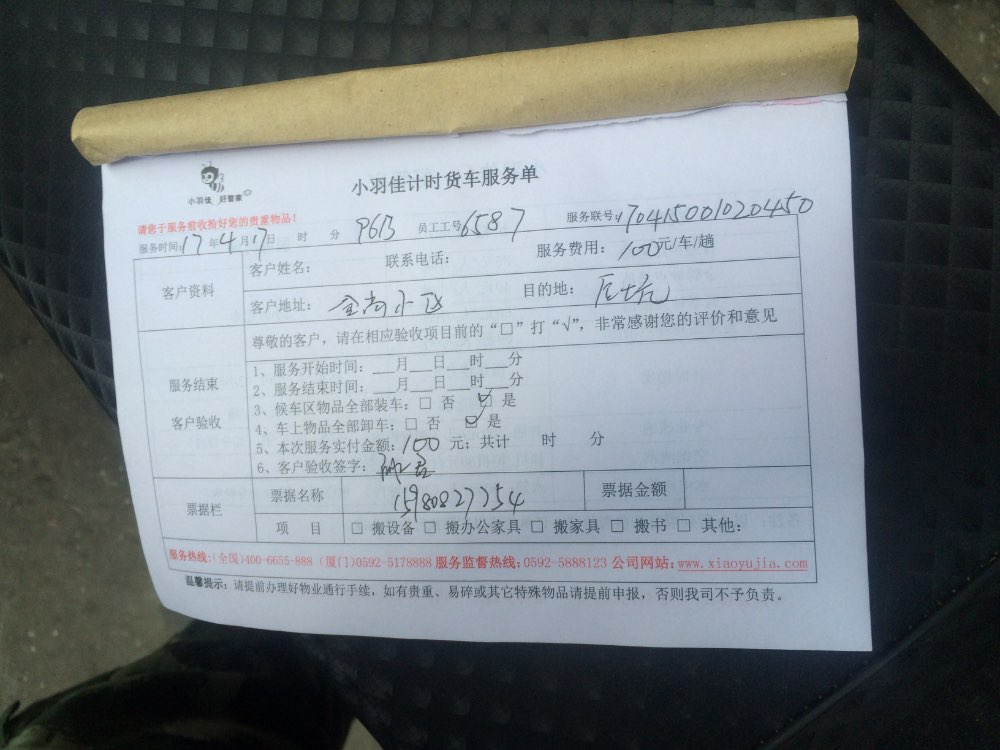 小羽佳 好管家
小羽佳计时货车服务单
请您于服务前收拾好您的贵重物品！
服务时间：17年4月17日 时 分 P6B 员工工号6587 服务联号：1704150010204450
客户资料
客户姓名： 联系电话： 服务费用：100元/车/趟
客户地址：金尚小区 目的地：后坑
服务结束
客户验收
尊敬的客户，请在相应验收项目前的“□”打“√”，非常感谢您的评价和意见
1、服务开始时间：___月___日___时___分
2、服务结束时间：___月___日___时___分
3、候车区物品全部装车：□ 否 ☑ 是
4、车上物品全部卸车：□ 否 ☑ 是
5、本次服务实付金额：100元；共计 时 分
6、客户验收签字：
票据栏
票据名称 15980827754 票据金额
项 目 □ 搬设备 □ 搬办公家具 □ 搬家具 □ 搬书 □ 其他：
服务热线：(全国)400-6655-888 (厦门)0592-5178888 服务监督热线：0592-5888123 公司网站：www.xiaoyujia.com
温馨提示：请提前办理好物业通行手续，如有贵重、易碎或其它特殊物品请提前申报，否则我司不予负责。